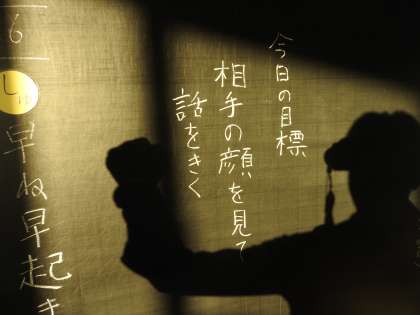 今日の目標
相手の顔を見て
話をきく
6
し
早ね早起き